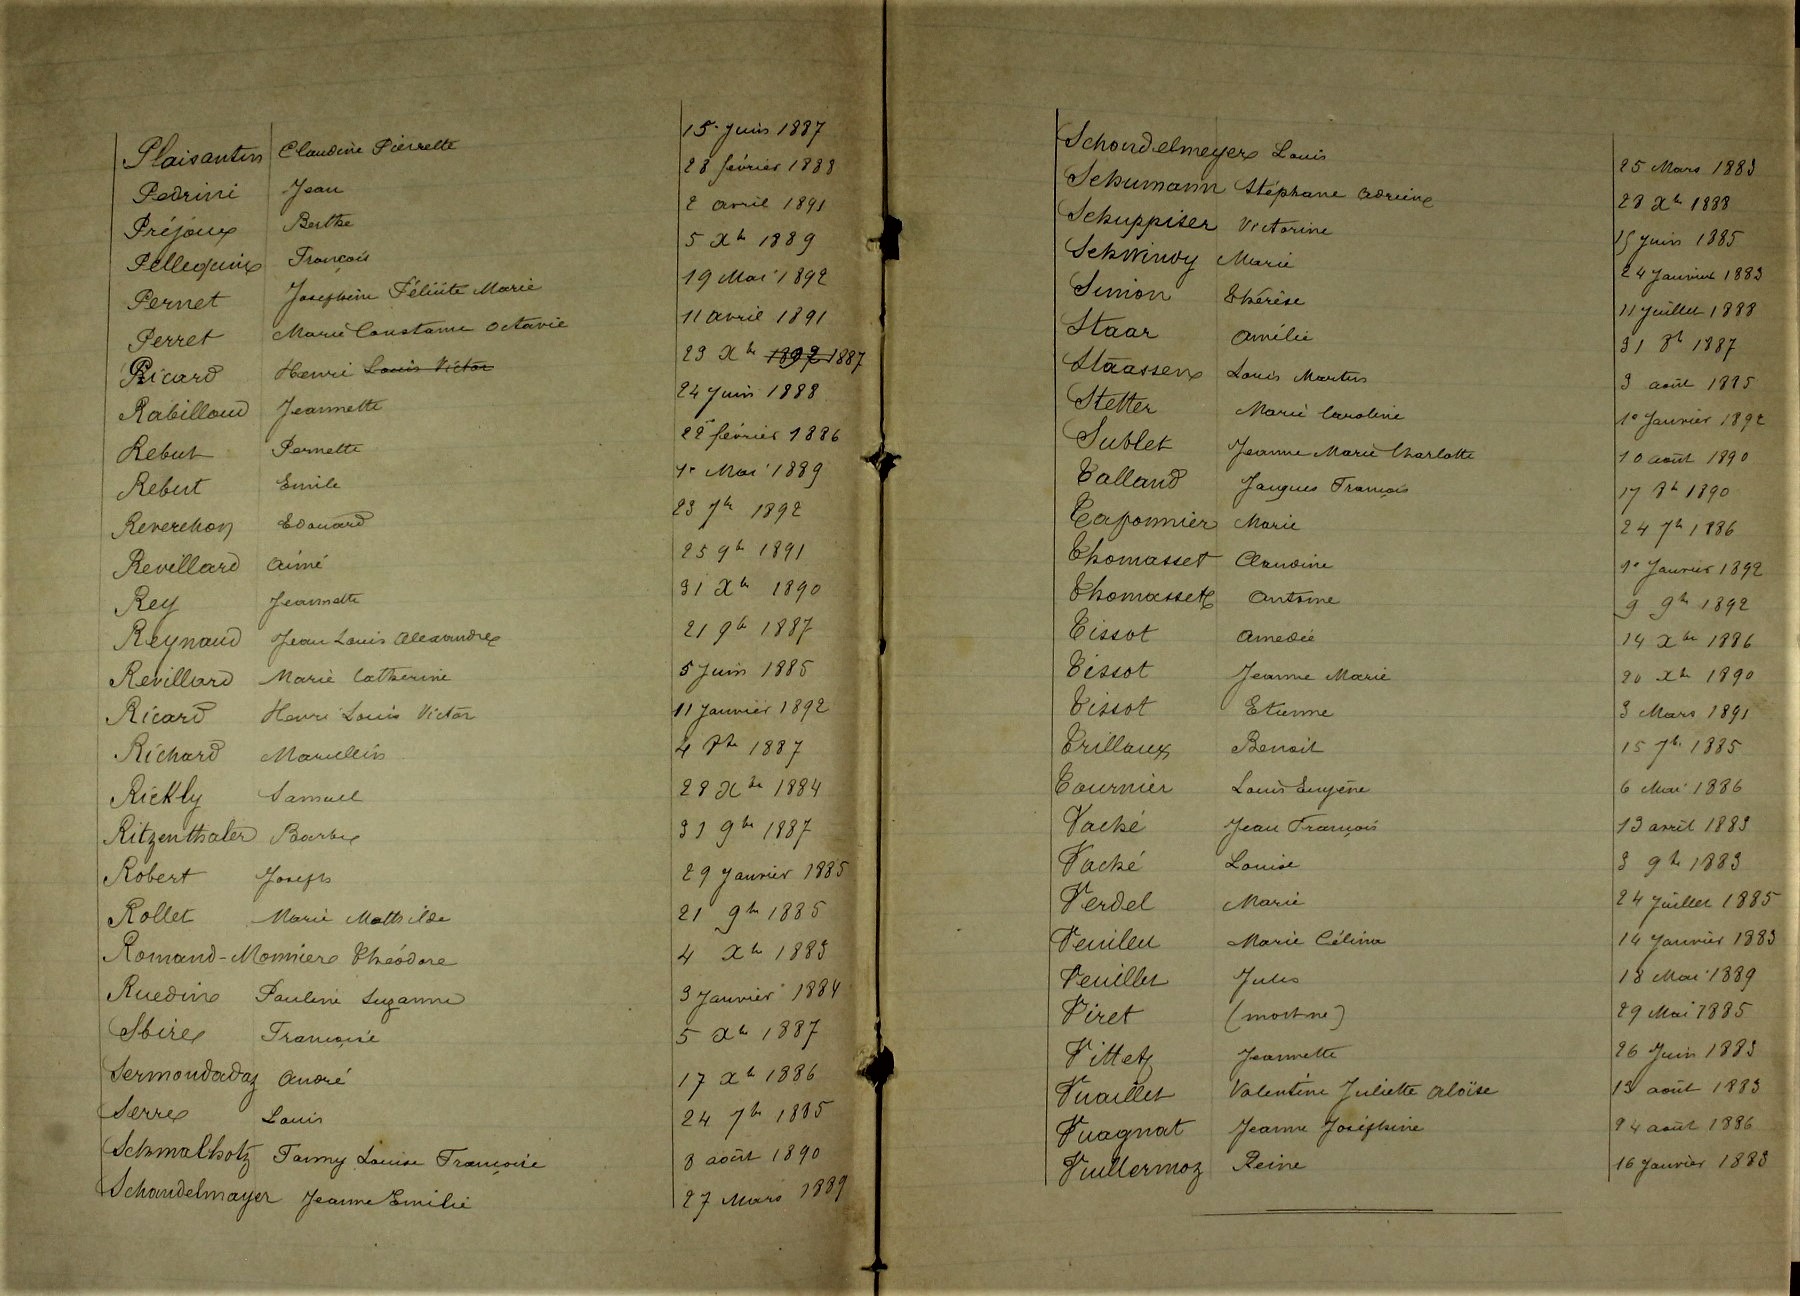 Plaisantin Claudine Pierrette 15 Juin 1887
Pedrini Jean 28 février 1888
Préjoux Berthe 2 avril 1891
Pellequin François 5 Xbr 1889
Pernet Joséphine Félicité Marie 19 Mai 1892
Perret Marie Constance Octavie 11 avril 1891
Ricard Henri Louis Victor 23 Xbr 1892 1887
Rabilloud Jeannette 24 Juin 1888
Rebut Pernette 22 février 1886
Rebut Emile 1er Mai 1889
Reverchon Edouard 23 7br 1892
Revillard Aimé 25 9b 1891
Rey Jeannette 31 Xbr 1890
Reynaud Jean Louis Alexandre 21 9b 1887
Revillard Marie Catherine 5 Juin 1885
Ricard Henri Louis Victor 11 Janvier 1892
Richard Marcellin 4 8br 1887
Rickly Samuel 28 Xbr 1884
Ritzenthaler Barbe 31 9br 1887
Robert Joseph 29 Janvier 1885
Rollet Marie Mathilde 21 9br 1885
Romand-Monnier Théodore 4 Xbr 1883
Ruedin Pauline Suzanne 3 Janvier 1884
Sbire Françoise 5 Xbr 1887
Sermondadaz André 17 Xb 1886
Serre Louis 24 7br 1885
Schmalhotz Fanny Louise Françoise 8 août 1890
Schandelmayer Jeanne Emilie 27 Mars 1889
Schondelmeyer Louis 25 Mars 1883
Schumann Stéphane Adrien 28 Xbr 1888
Schuppiser Victorine 15 Juin 1885
Schwindy Marie 24 Janvier 1883
Simon Thérèse 11 Juillet 1888
Staar Amélie 31 8b 1887
Staassen Louis Martin 3 août 1885
Stetter Marie Caroline 1er Janvier 1892
Sublet Jeanne Marie Charlotte 10 août 1890
Talland Jacques François 17 8b 1890
Taponnier Marie 24 7b 1886
Thomasset Claudine 1er Janvier 1892
Thomasset Antoine 9 9br 1892
Tissot Amédée 14 Xbr 1886
Tissot Jeanne Marie 20 Xbr 1890
Tissot Etienne 3 Mars 1891
Trillaux Benoit 15 7b 1885
Tournier Louis Eugène 6 Mai 1886
Vaché Jean François 13 avril 1883
Vaché Louise 3 9br 1883
Verdel Marie 24 Juillet 1885
Veuileu Marie Célina 14 Janvier 1883
Veuillet Jules 18 Mai 1889
Viret (mort né) 29 Mai 1885
Vittetz Jeannette 26 Juin 1883
Vuaillet Valentine Juliette Aloïse 13 août 1883
Vuagnat Jeanne Joséphine 24 août 1886
Vuillermoz Reine 16 Janvier 1883